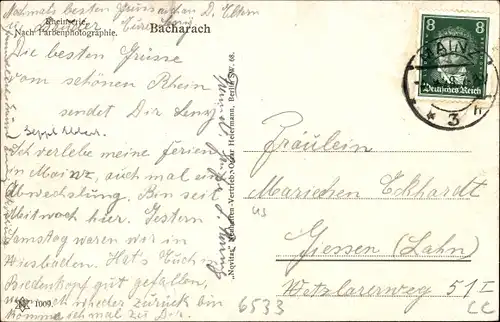 Nochmals besten Gruss auch an D. Eltern
u. Brüder Eure Leny
Rheinserie.
Nach Farbenphotographie.
Bacharach
Die besten Grüsse
vom schönen Rhein
sendet Dir Leny
Ich verlebe meine Ferien
in Mainz, auch mal eine
Abwechslung. Bin seit
Mittwoch hier. Gestern
Samstag waren wir in
Wiesbaden. Hat's Euch in
Biedenkopf gut gefallen,
wenn ich wieder zurück bin
komme ich mal zu Dir.
1009.
"Novitas" Neuheiten-Vertrieb Oskar Heiermann, Berlin SW. 68.
8 8
Deutsches Reich
MAINZ
* 3 n
Fräulein
Mariechen Eckhardt
Giessen (Lahn)
Wetzlarerweg 51 I
6533